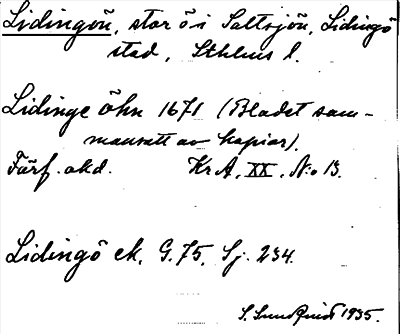 Lidingön, stor ö i Saltsjön, Lidingö
stad, Sthlms l.
Lidinge öhn 1671 (Bladet sam-
mansatt av kopior).
Förf. okd. Kr A, XX, No 13.
Lidingö ek. G. 75, Sj. 234.
S. Sundquist 1935.